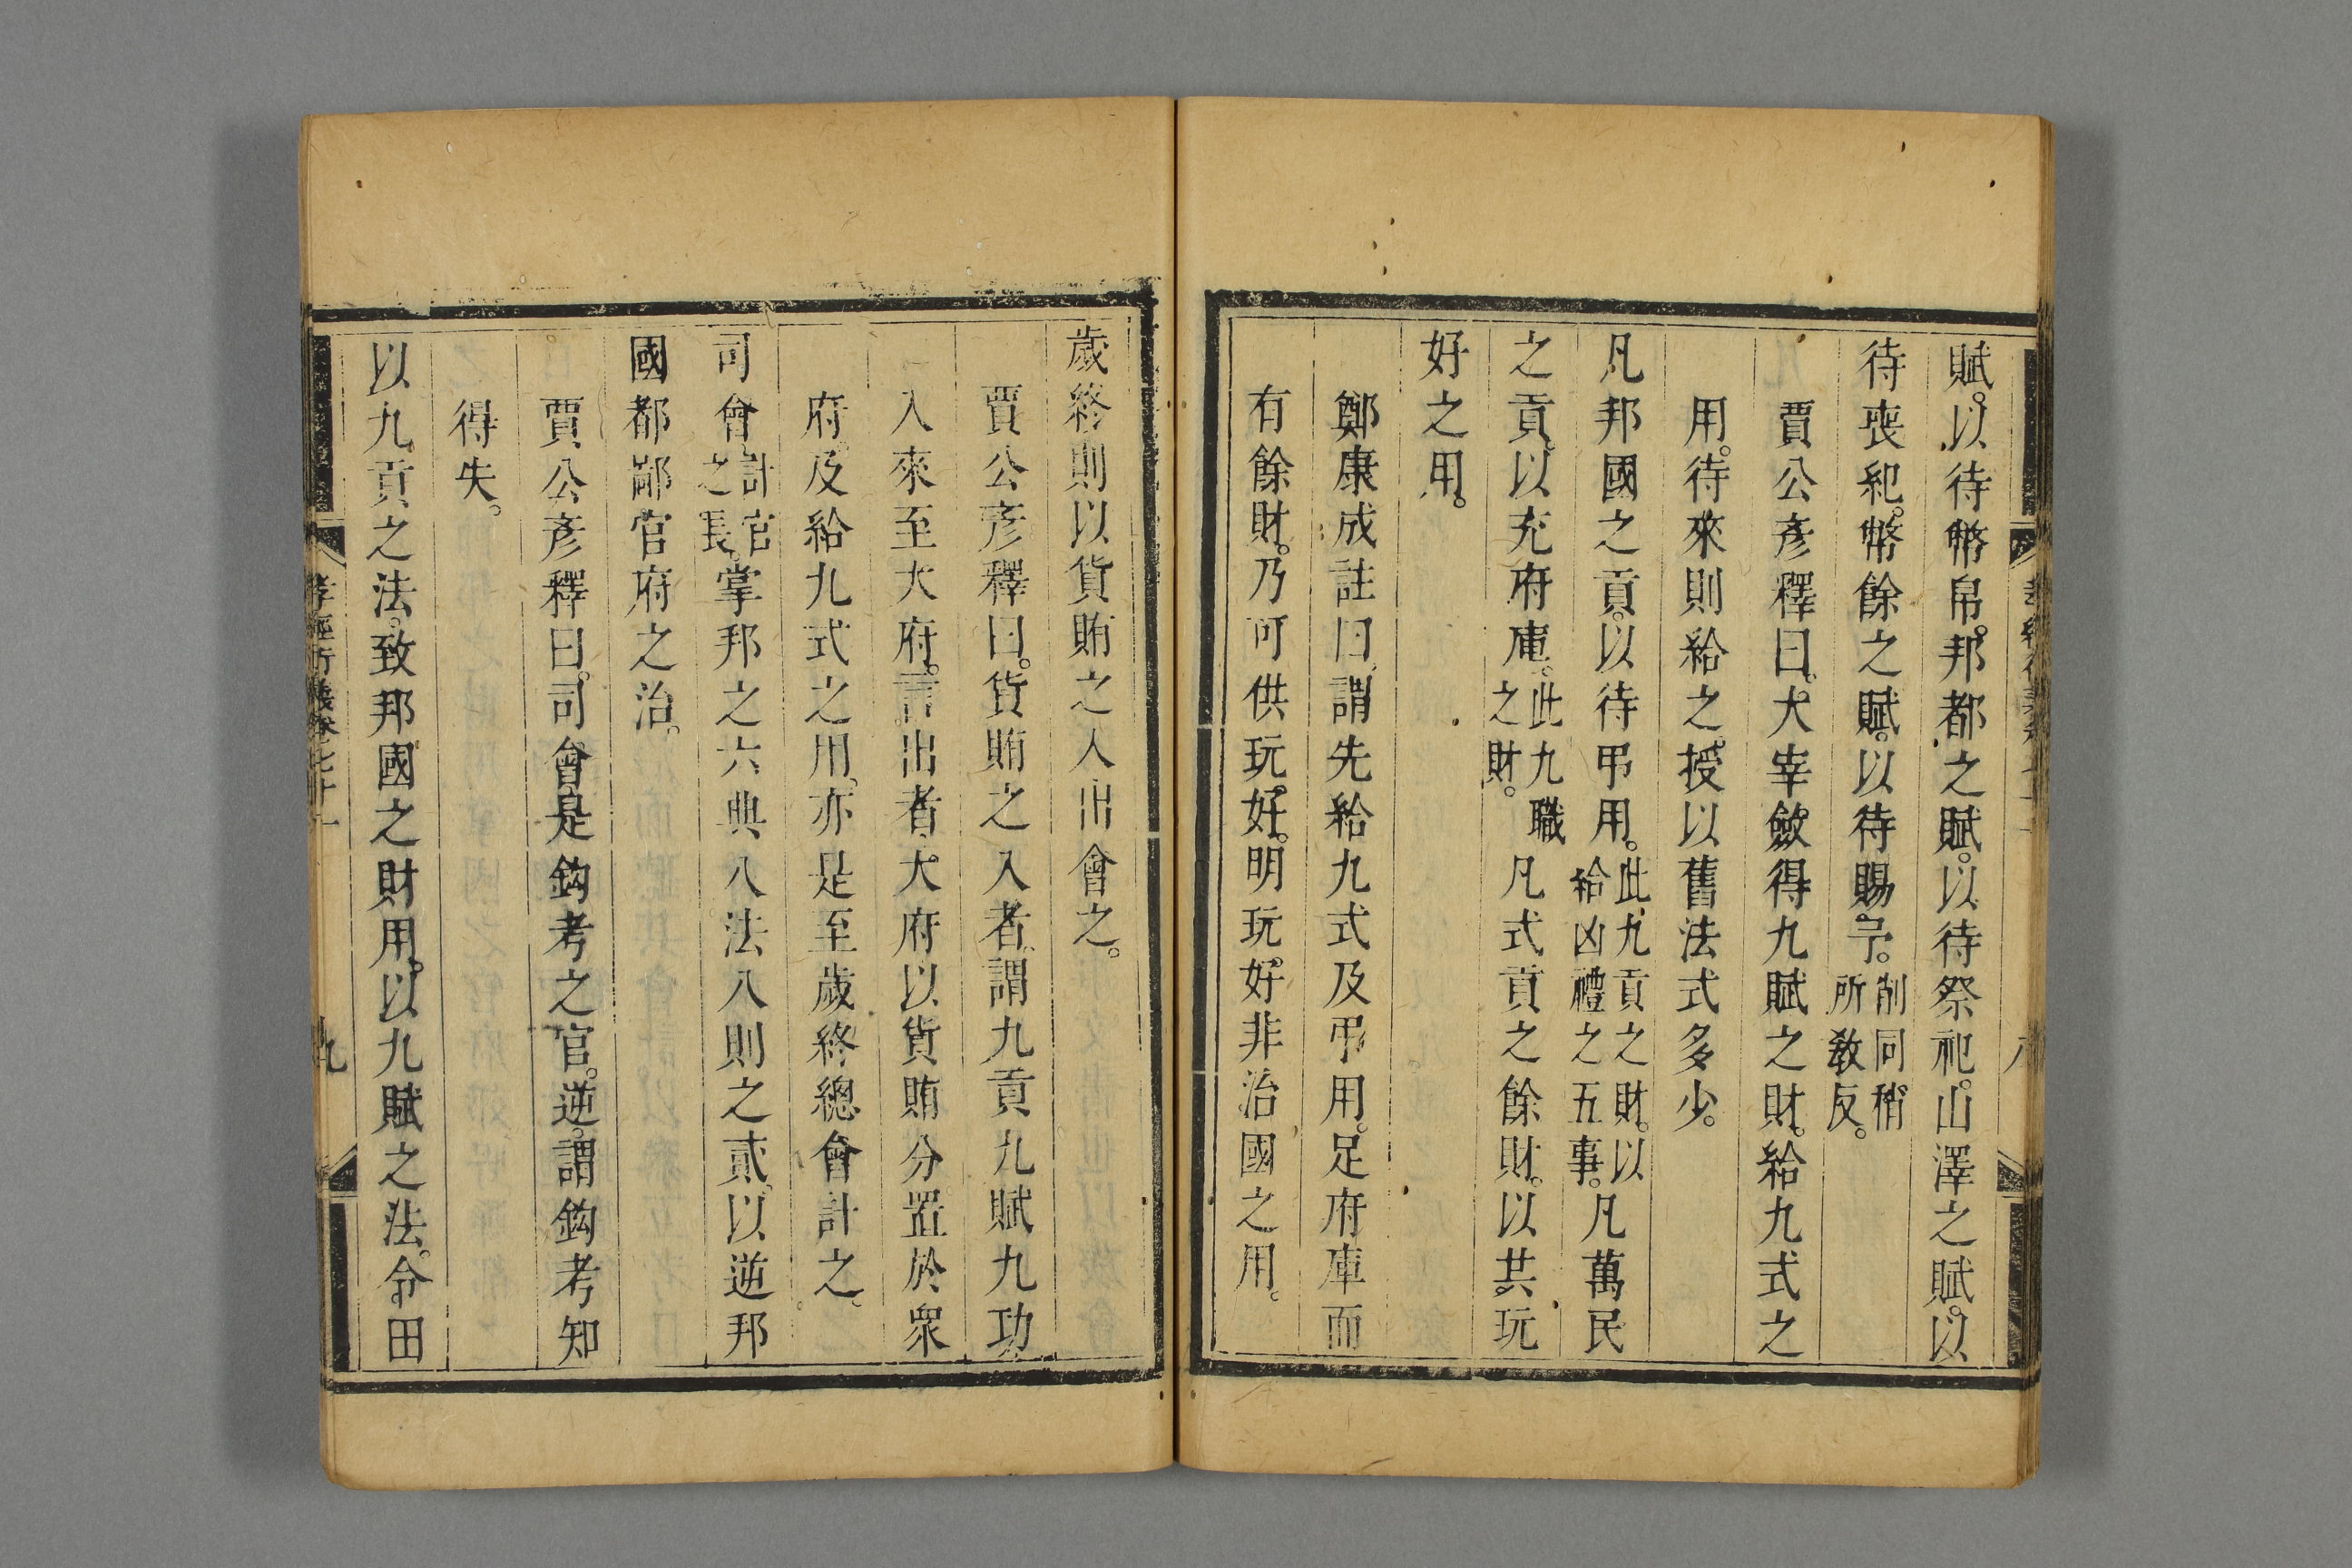 賦。以待幣帛。邦都之賦。以待祭祀。山澤之賦。以
待喪紀。幣餘之賦。以待賜予。削同稍所教反。
賈公彥釋曰。大宰斂得九賦之財。給九式之
用。待來則給之。授以舊法式多少。
凡邦國之貢。以待弔用。此九貢之財。以給凶禮之五事。凡萬民
之貢。以充府庫。此九職之財。凡式貢之餘財。以共玩
好之用。
鄭康成註曰。謂先給九式及弔用。足府庫而
有餘財。乃可供玩好。明玩好非治國之用。
歲終則以貨賄之入出會之。
賈公彥釋曰。貨賄之入者。謂九貢九賦九功
入來至大府。言出者。大府以貨賄分置於衆
府。及給九式之用。亦是至歲終總會計之。
司會計官之長。掌邦之六典八法八則之貳。以逆邦
國都鄙官府之治。
賈公彥釋曰。司會是鈎考之官。逆。謂鈎考知
得失。
以九貢之法。致邦國之財用。以九賦之法。令田
孝經衍義卷七十一
九